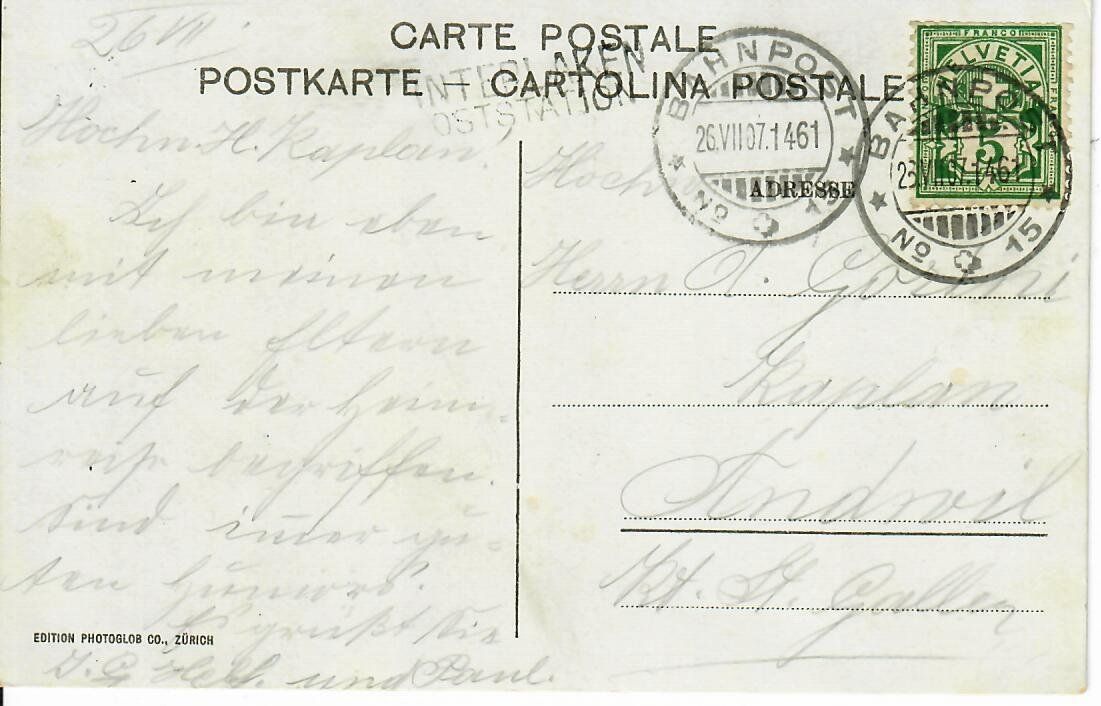 26 VII
CARTE POSTALE
POSTKARTE – CARTOLINA POSTALE
INTERLAKEN
OSTSTATION
BAHNPOST
26.VII.07.1461
No 15
FRANCO
HELVETIA
5
BAHNPOST
26.VII.07.1461
No 15
Hochw. H. Kaplan!
Ich bin eben
mit meinen
lieben Eltern
auf der Heim-
reise begriffen.
Sind immer gu-
ten Humors.
Es grüßt Sie
und Paul.
EDITION PHOTOGLOB CO., ZÜRICH
ADRESSE
Hochw
Herrn
Kaplan
Andwil
Kt. St. Gallen